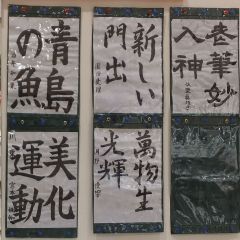 巻筆妙
入神
新しい
門出
青島
の魚
萬物生
光輝
美化
運動